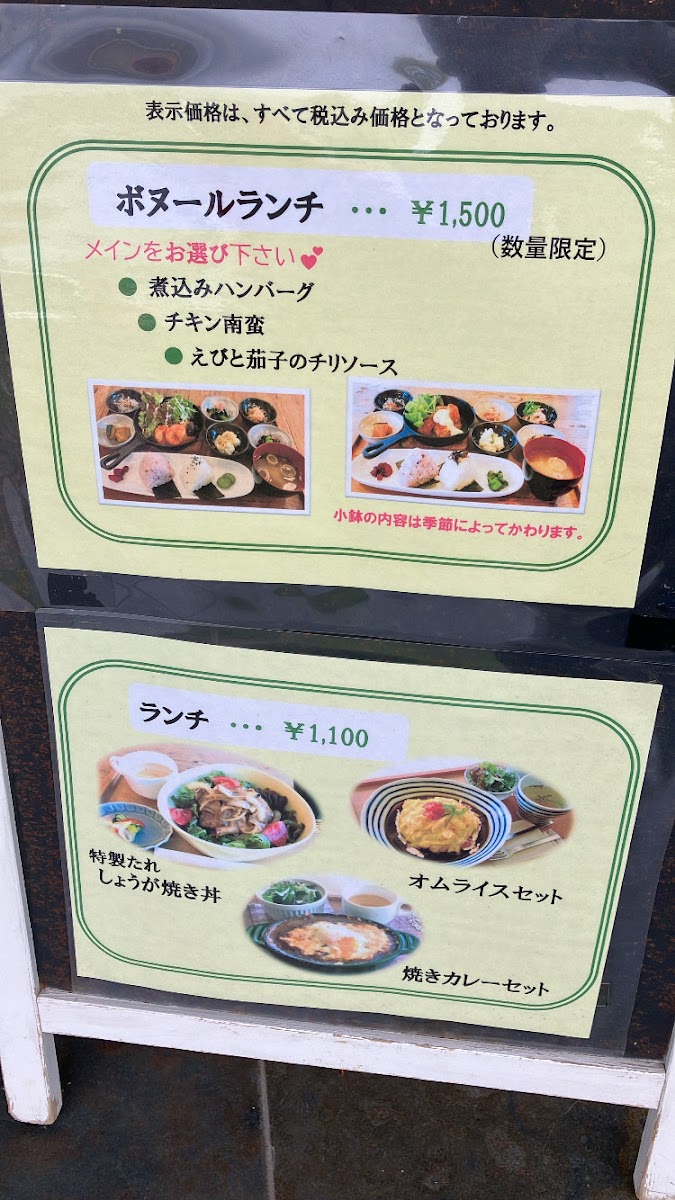 表示価格は、すべて税込み価格となっております。
ボヌールランチ ・・・ ￥1,500
(数量限定)
メインをお選び下さい💕
● 煮込みハンバーグ
● チキン南蛮
● えびと茄子のチリソース
小鉢の内容は季節によってかわります。
ランチ ・・・ ￥1,100
特製たれ
しょうが焼き丼
オムライスセット
焼きカレーセット